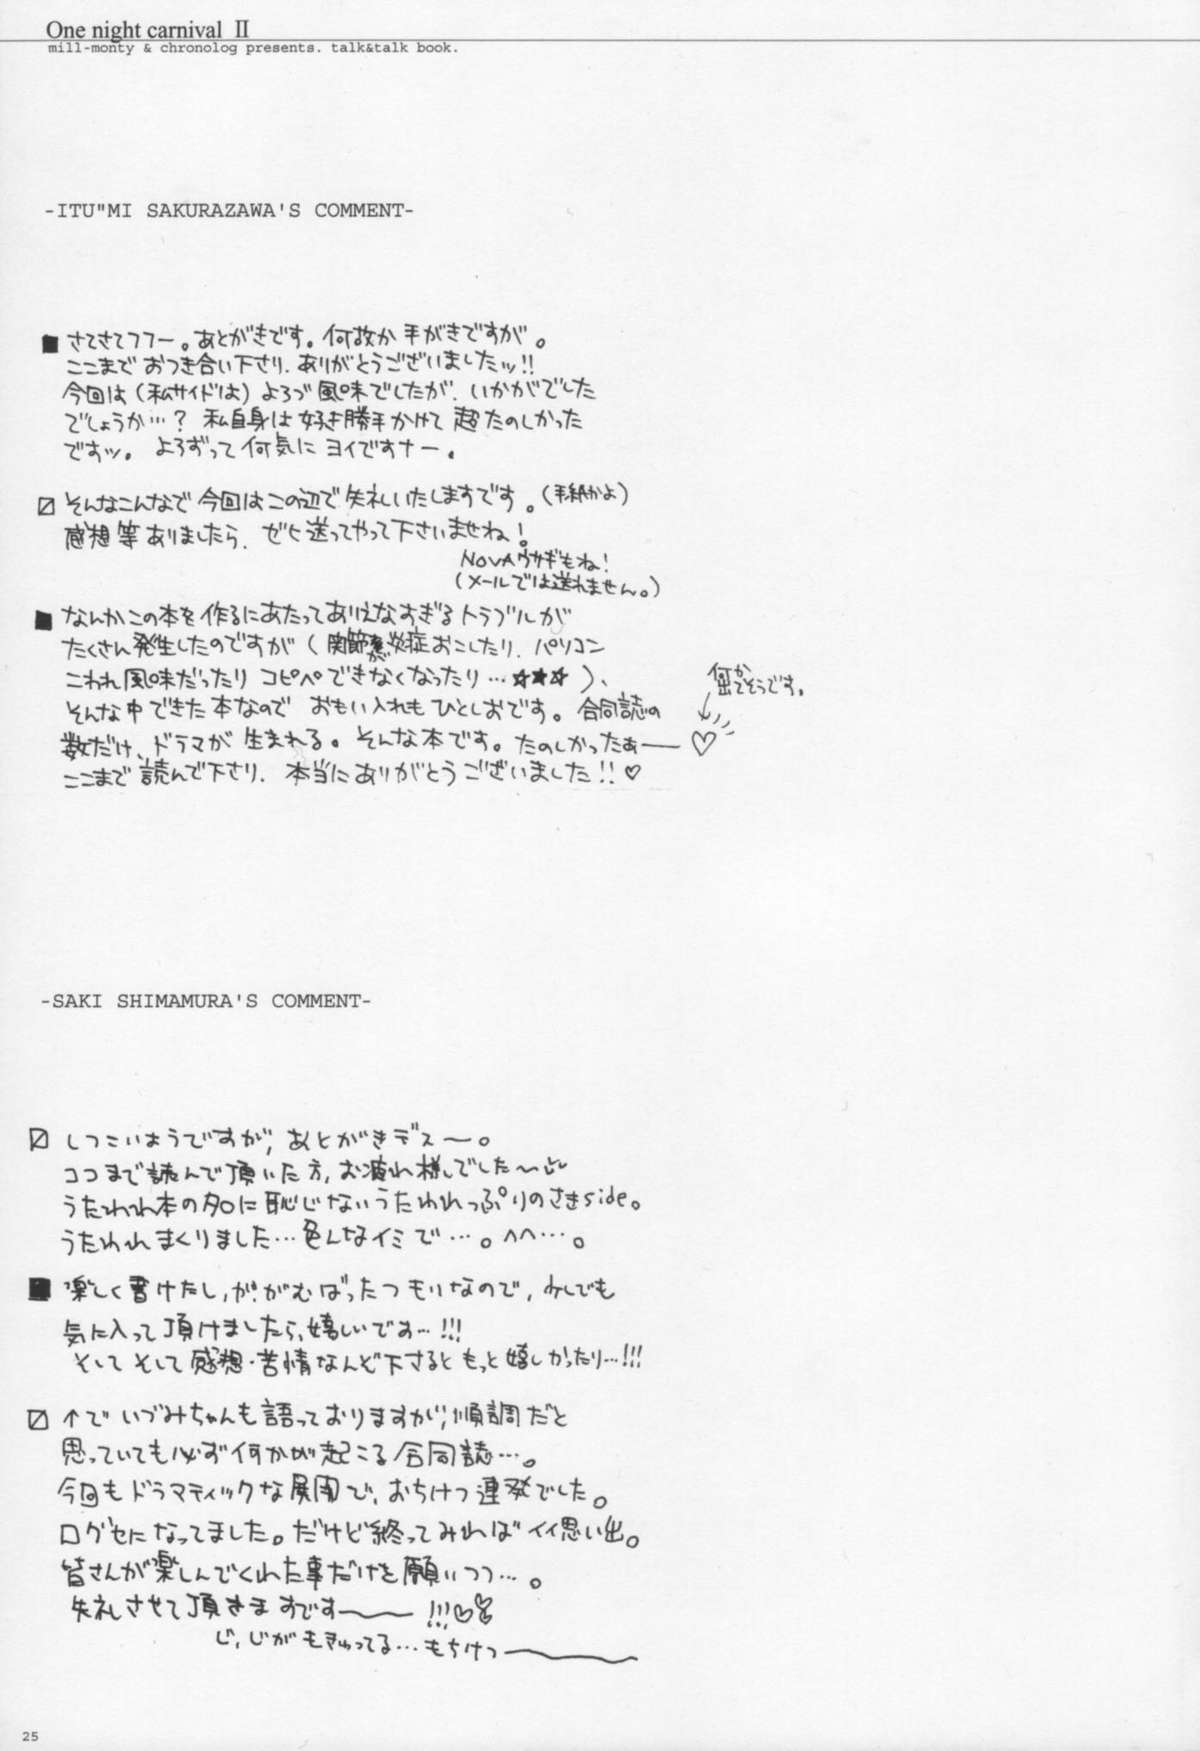 One night carnival Ⅱ
mill-monty & chronolog presents. talk&talk book.
-ITU"MI SAKURAZAWA'S COMMENT-
■ さてさてフフー。あとがきです。何故か手がきですが。
ここまでおつき合い下さり、ありがとうございましたッ!!
今回は(私サイドは)よろづ風味でしたが、いかがでした
でしょうか…? 私自身は好き勝手かけて超たのしかった
ですッ。よろずって何気にヨイですナー。
〼 そんなこんなで今回はこの辺で失礼いたしますです。(手紙かよ)
感想等ありましたら、ゼヒ送ってやって下さいませね!
NOVAウサギもね!
(メールでは送れません。)
■ なんかこの本を作るにあたってありえなすぎるトラブルが
たくさん発生したのですが(関節炎症おこしたり、パソコン
こわれ風味だったりコピペできなくなったり…★★★)、
そんな中できた本なので おもい入れもひとしおです。合同誌の
数だけ、ドラマが生まれる。そんな本です。たのしかったぁー ♡
何か出てそうです。
ここまで読んで下さり、本当にありがとうございました!!♡
-SAKI SHIMAMURA'S COMMENT-
〼 しつこいようですが、あとがきデスー。
ココまで読んで頂いた方、お疲れ様でした〜
うたわれ本の名に恥じないうたわれっぷりのさきside。
うたわれまくりました…色んなイミで…。へへ…。
■ 楽しく書けたし、が!がむばったつもりなので、少しでも
気に入って頂けましたら、嬉しいです…!!!
そしてそして感想・苦情なんど下さるともっと嬉しかったり…!!!
〼 ↑でいづみちゃんも語っておりますが、順調だと
思っていても必ず何かが起こる合同誌…。
今回もドラマティックな展開で、おちけつ連発でした。
口グセになってました。だけど終ってみればイイ思い出。
皆さんが楽しんでくれた事だけを願いつつ…。
失礼させて頂きますですー!!!♡
じ、じがもきゅってる…もちけつー
25